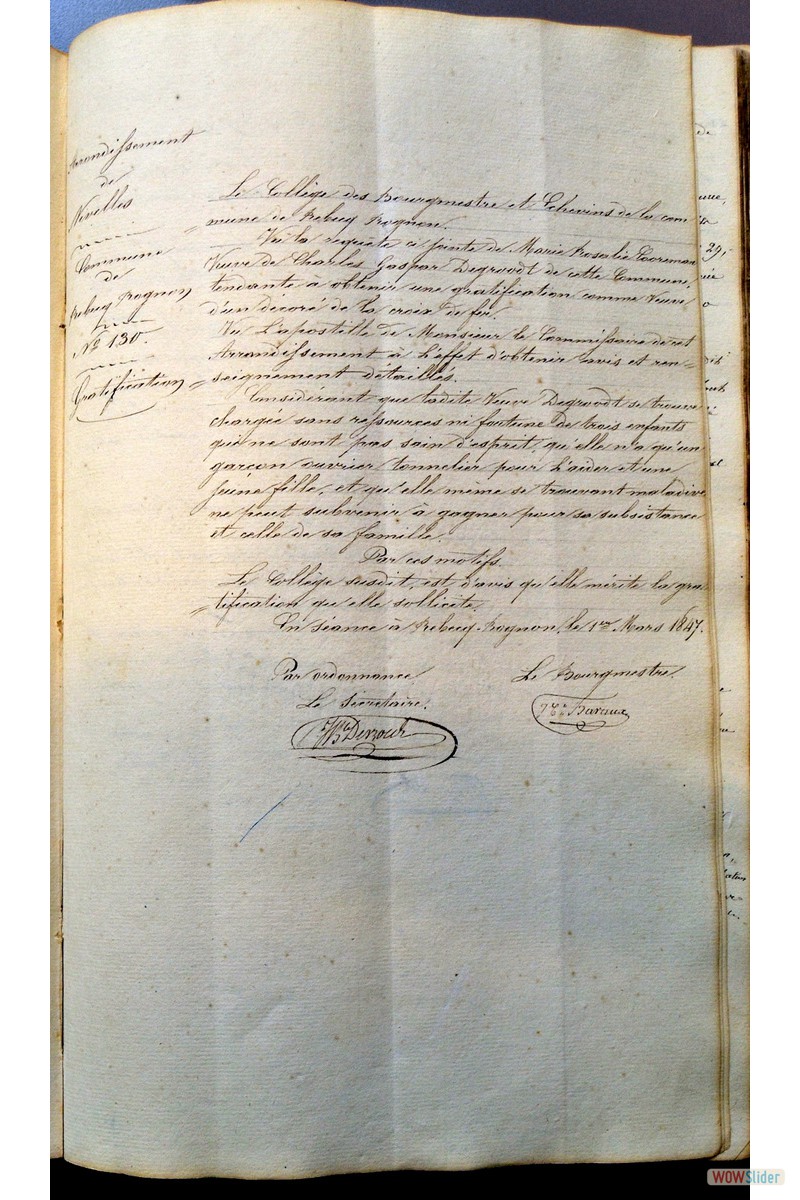 Arrondissement
de
Nivelles
Commune
de
Rebecq Rognon
N° 130.
Gratification
Le Collège des Bourgmestre et Echevins de la com=
=mune de Rebecq Rognon.
Vu la requête ci jointe de Marie Rosalie Cooreman
Veuve de Charles Gaspar Degroodt de cette Commune,
tendante à obtenir une gratification comme Veuve
d'un décoré de la croix de fer.
Vu L'apostille de Monsieur le Commissaire de cet
Arrondissement à l'effet d'obtenir avis et ren=
=seignement détaillés.
Considérant que ladite Veuve Degroodt se trouve
chargée sans ressources ni fortune de trois enfants
qui ne sont pas sain d'esprit, qu'elle n'a qu'un
garçon ouvrier tonnelier pour l'aider et une
jeune fille, et qu'elle même se trouvant maladive
ne peut subvenir à gagner pour sa subsistance
et celle de sa famille.
Par ces motifs.
Le Collège susdit, est d'avis qu'elle mérite la gra
=tification qu'elle sollicite.
En séance à Rebecq-Rognon, le 1er Mars 1847.
Par ordonnance
Le Secrétaire.
Le Bourgmestre.
29,
WOWSlider